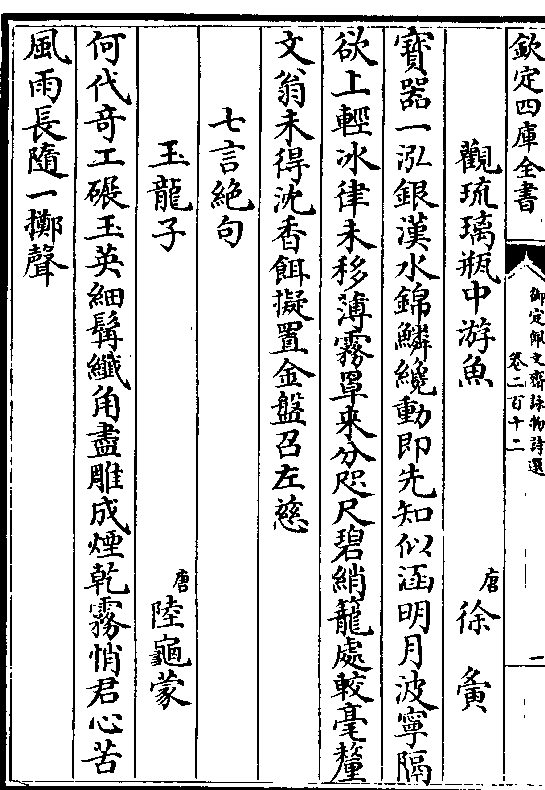 欽定四庫全書
御定佩文齋詠物詩選
卷二百十二
一
觀琉璃瓶中游魚
唐
徐夤
寶器一泓銀漢水錦鱗纔動即先知似涵明月波寧隔
欲上輕冰律未移薄霧罩來分咫尺碧綃籠處較毫釐
文翁未得沈香餌擬置金盤召左慈
七言絶句
玉龍子
唐
陸龜蒙
何代竒工碾玉英細髯纖角盡雕成煙乾霧悄君心苦
風雨長隨一擲聲